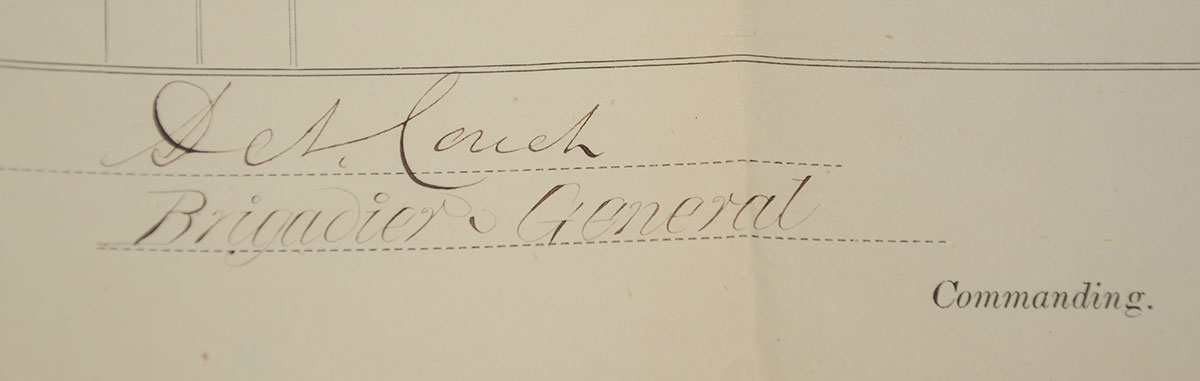 D N. Couch
Brigadier General
Commanding.